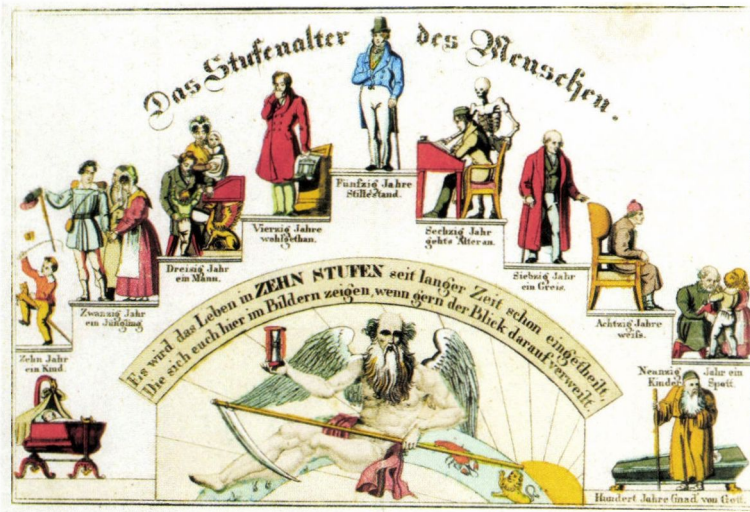 Das Stufenalter des Menschen.
Zehn Jahr
ein Kind.
Zwanzig Jahr
ein Jüngling
Dreisig Jahr
ein Mann.
Vierzig Jahre
wohlgethan.
Fünfzig Jahre
Stillestand.
Sechzig Jahr
gehts Alter an.
Siebzig Jahr
ein Greis.
Achtzig Jahre
weiss.
Neunzig Jahr ein
Kinder Spott.
Hundert Jahre Gnad von Gott.
Es wird das Leben in ZEHN STUFEN seit langer Zeit schon eingetheilt,
Die sich euch hier im Bildern zeigen, wenn gern der Blick darauf verweilt.